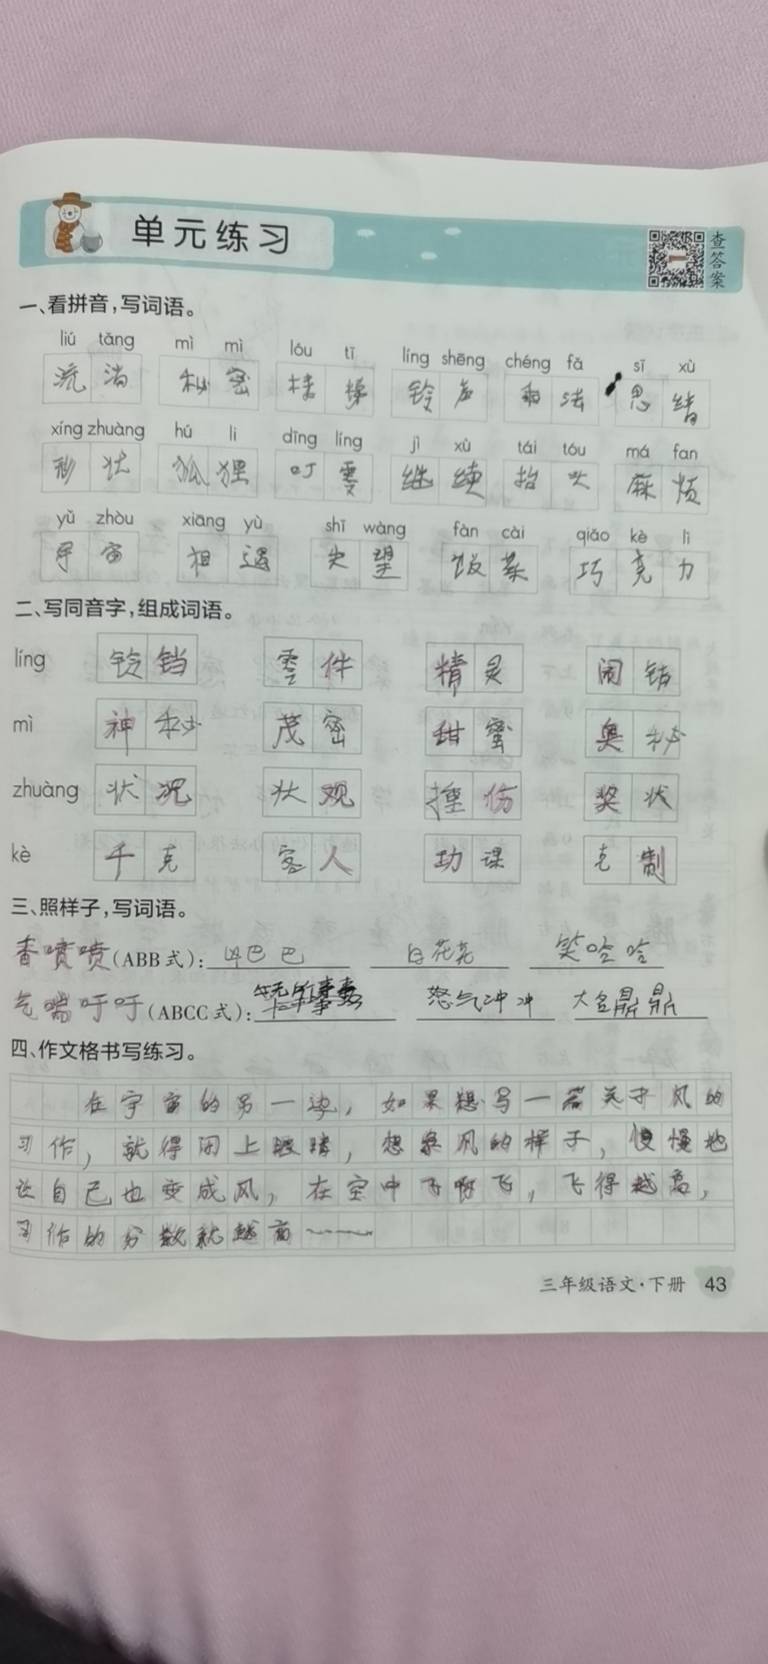 单元练习
查答案
一、看拼音,写词语。
liú tǎng mì mì lóu tī líng shēng chéng fǎ sī xù
流淌 秘密 楼梯 铃声 乘法 思绪
xíng zhuàng hú li dīng líng jì xù tái tóu má fan
形状 狐狸 叮零 继续 抬头 麻烦
yǔ zhòu xiāng yù shī wàng fàn cài qiǎo kè lì
宇宙 相遇 失望 饭菜 巧克力
二、写同音字,组成词语。
líng 铃铛 零件 精灵 闹铃
mì 神秘 茂密 甜蜜 奥秘
zhuàng 状况 状观 撞伤 奖状
kè 千克 客人 功课 克制
三、照样子,写词语。
香喷喷(ABB式): 巴巴 白花花 笑哈哈
气喘吁吁(ABCC式): 怒气冲冲 大名鼎鼎
四、作文格书写练习。
在宇宙的另一边,如果想写一篇关于风的
习作,就得闭上眼睛,想象风的样子,慢慢地
让自己也变成风,在空中飞啊飞,飞得越高,
习作的分数就越高……
三年级语文·下册 43